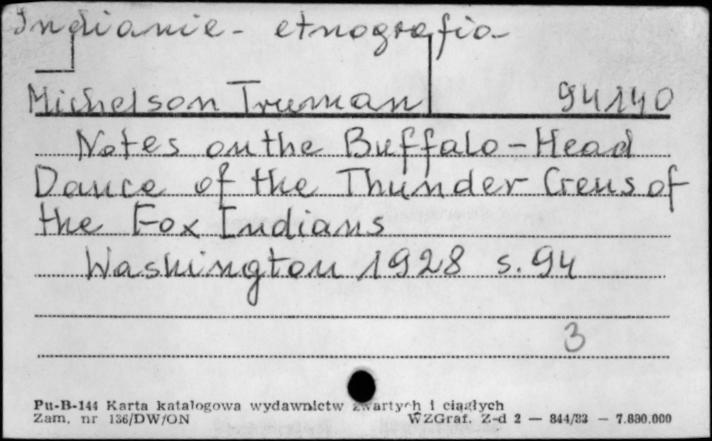 Indianie - etnografia
Michelson Truman 94140
Notes on the Buffalo-Head
Dance of the Thunder Crens of
the Fox Indians
Washington 1928 s. 94
3
Pu-B-144 Karta katalogowa wydawnictw zwartych i ciągłych
Zam. nr 136/DW/ON WZGraf. Z-d 2 — 844/83 — 7.630.000